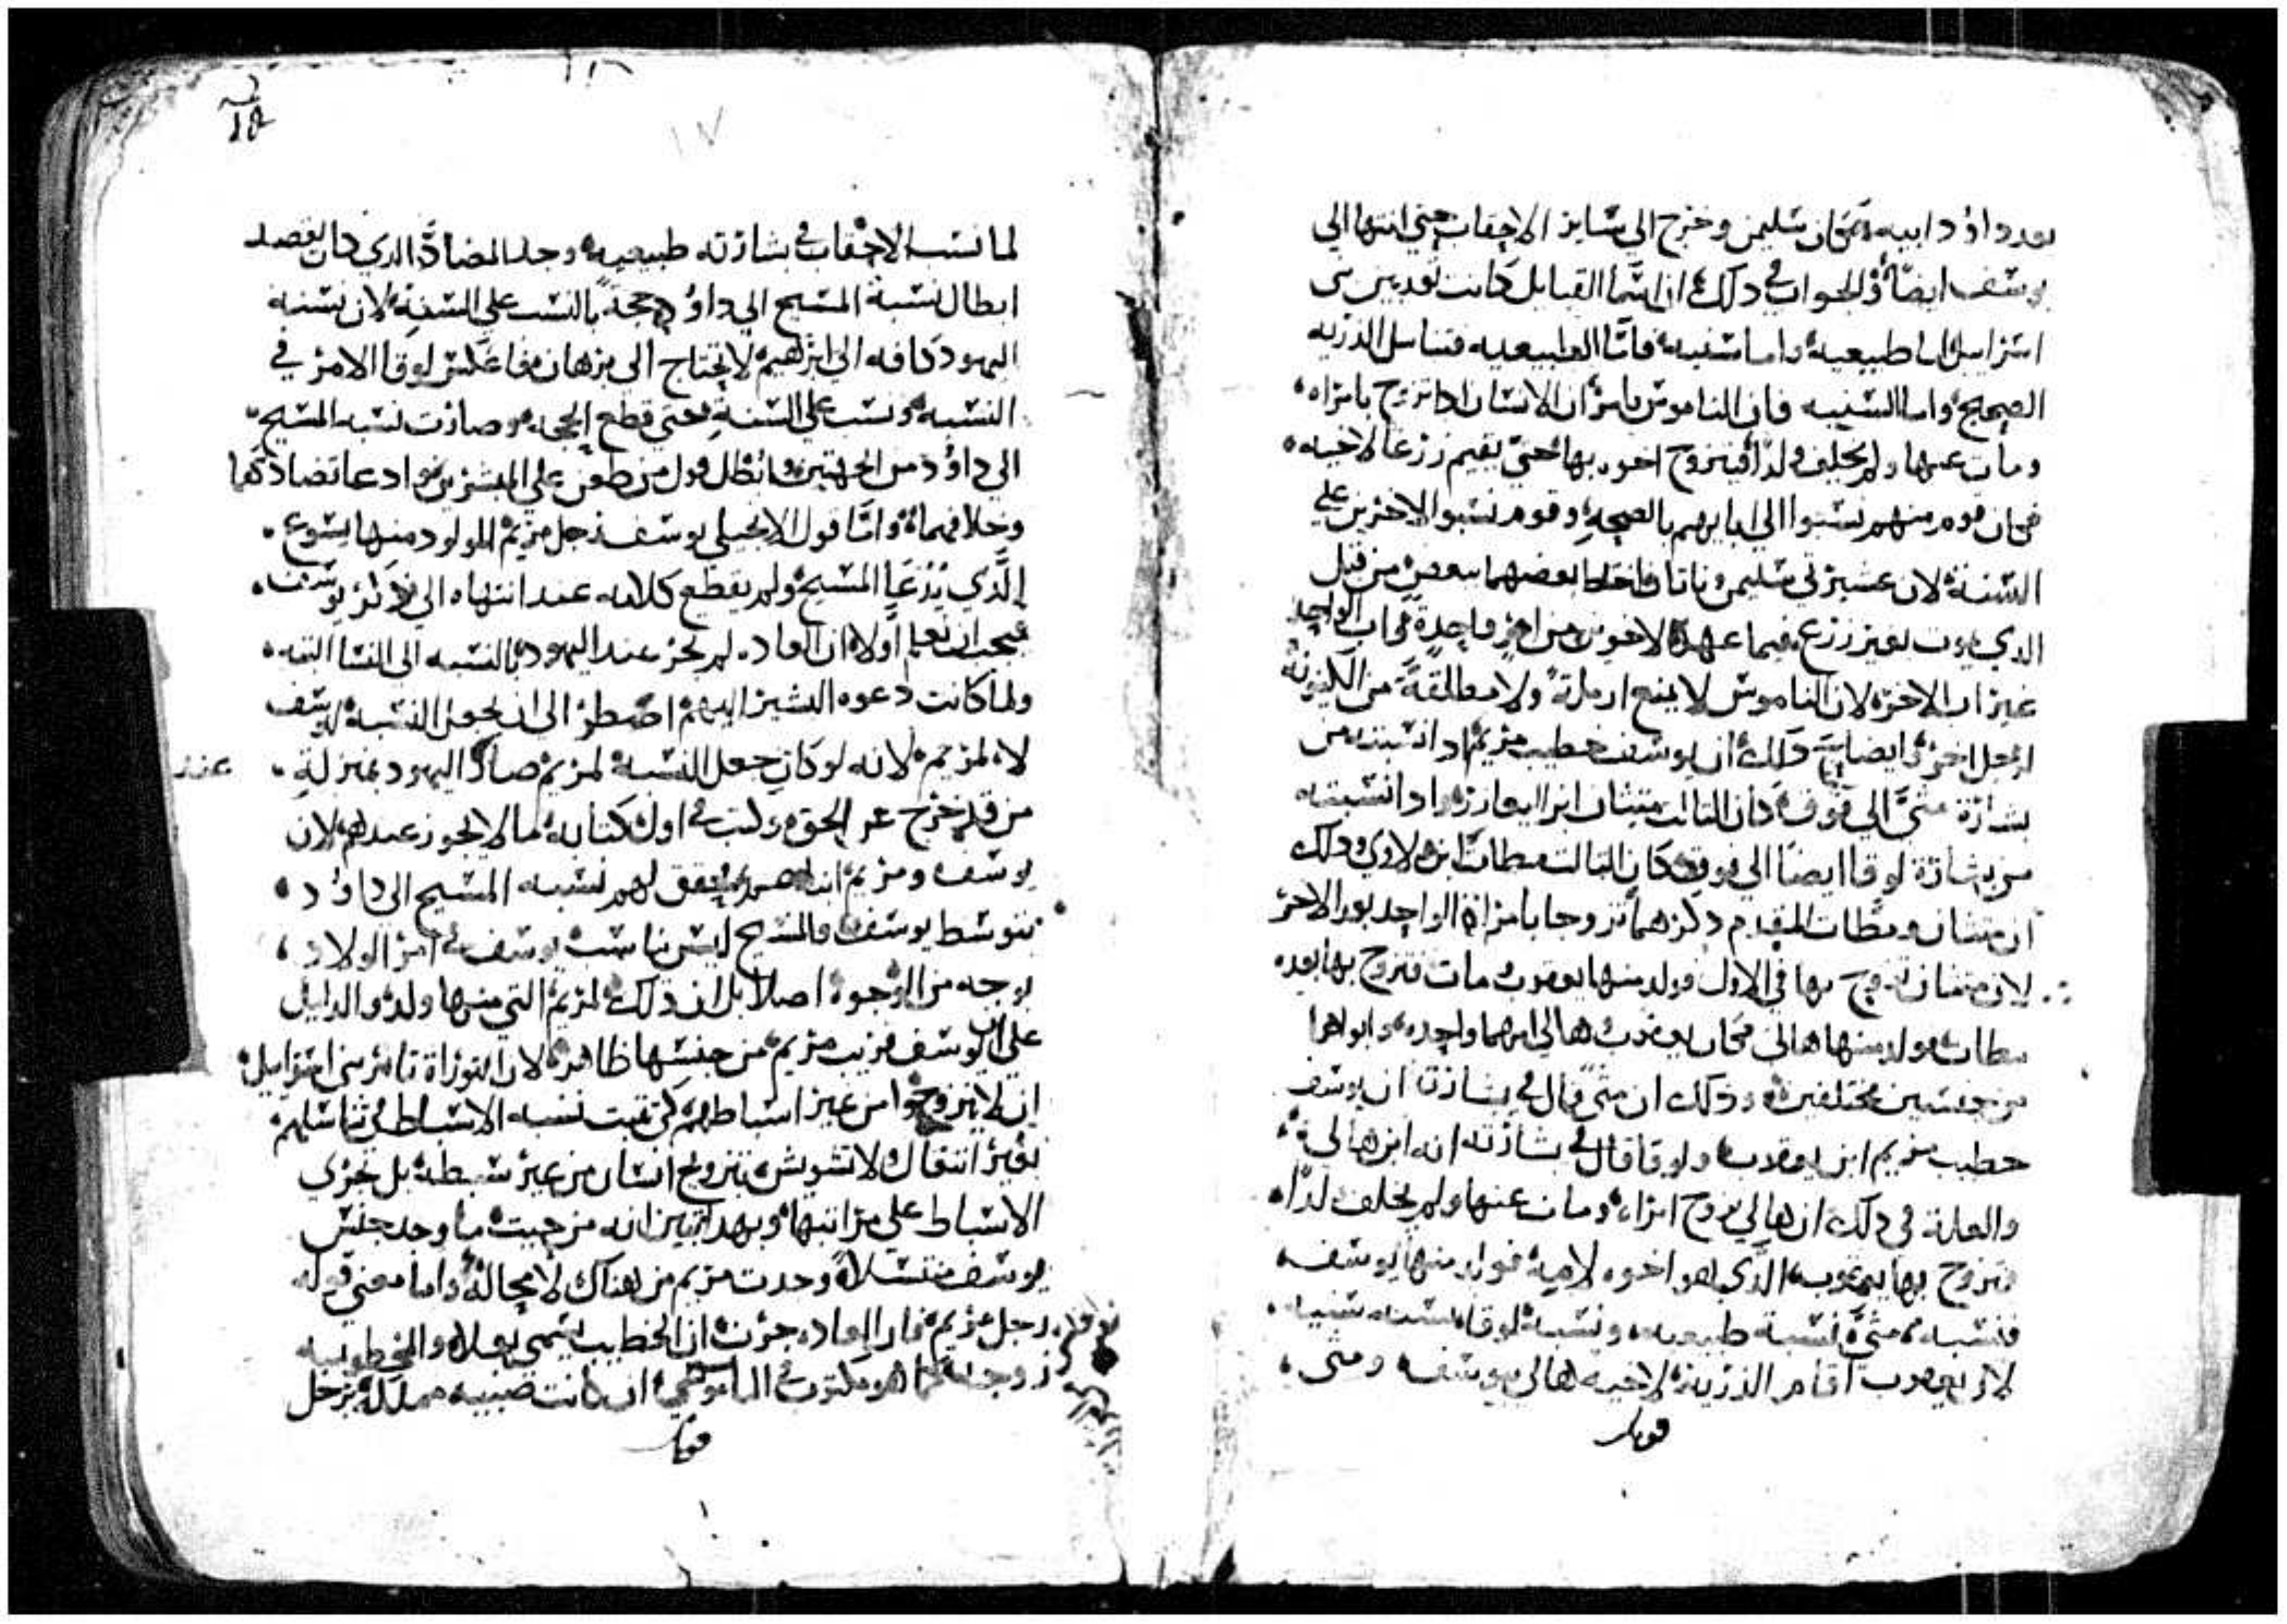 بعد داوٌد ابيه فكان سليمن وخرج الي ساير الاحقاب حتي انتها الي
يوسف ايضاً والجواب في دلك ان انسما القبايل كانت تعد ببني
اسراييل اما طبيعيه واما سنيه فاما الطبيعيه فتناسل الدريه
الصحيح واما السنيه فان الناموس يامر ان الانسان ادا تزوج بامراه
ومات عنها ولم يخلف ولداً فيتزوج اخوه بها حتي يقيم زرعا لاخيه
فكان قوم منهم نسبوا الي ابايهم بالصحه وقوم نسبوا الاخرين علي
السنة لان عشيرتي سليمن وناتان اختلطا بعضهما ببعض من قبل
الدي يموت بغير زرع فيما عهدة الاخوين من ام واحدة واب الواحد
غير اب الاخر لان الناموس لا يمنع ارملة ولا مطلقة من الكينونة
لرجل اخر ايضا دلك ان يوسف خطيب مريم ادا نسبته من
بشارة متي الي فوق كان الثالت متثان ابن اليعازر وادا نسبته
من بشارة لوقا ايضا الي فوق كان التالت مطات ابن لاوي ودلك
ان متثان ومطات المقدم دكرهما تزوجا بامراة الواحد بعد الاخر
لان متثان تزوج بها في الاول فولد منها يعقوب ومات فتزوج بها بعده
مطات فولد منها هالي فكان يعقوب وهالي امهما واحده وابواهما
من جنسين مختلفين ودلك ان متي قال في بشارته ان يوسف
خطيب مريم ابن يعقوب ولوقا قال في بشارته انه ابن هالي
والعلة في دلك ان هالي تزوج امراه ومات عنها ولم يخلف لداً
فتزوج بها يعقوب الدي هو اخوه لامه فولد منها يوسف
فنسبه متي نسبة طبيعيه ونسبة لوقا نسبه سنيه
لان يعقوب اقام الذرية لاخيه هالي يوسف ومتي
قوبل
١٧
لما نسب الاحقاب في بشارته طبيعيه وجد المضاد الدي كان يقصد
ابطال نسبة المسيح الي داوٌد حجة بالنسب علي السنة لان نسبة
اليهود كافه الي ابرهيم لا يحتاج الي برهان فعكس لوقا الامر في
النسبه ونسب علي السنة حتي قطع الحجه وصارت نسبه المسيح
الي داوٌد من الجهتين وابطل قول من طعن علي المبشرين وادعا تضاددهما
وخلافهما واما قول الانجيلي يوسف رجل مريم المولود منها يسوع
الذي يدعا المسيح ولم يقطع كلامه عند انتهاه الي دكر يوسف
فيجب ان نعلم اولا ان العاده لم تجر عند اليهود بالنسبه الي النسا البته
ولما كانت دعوه البشير اليهم اضطر الي ان يجعل النسبة ليوسف
لا لمريم لانه لو كان جعل النسبة لمريم صار اليهود بمنزلة
عند
من قد خرج عن الحق وكتب في اول كتابه ما لا يجوز عندهم لان
يوسف ومريم لهم نسبه المسيح الي داوٌد
بتوسط يوسف والمسيح ليس يناسب يوسف في امر الولاد
بوجه من الوجوه اصلا بل ان دلك لمريم التي منها ولد والدليل
علي ان يوسف قريب مريم من جنسها ظاهر لان التوراة تامر بني اسراييل
ان لا يتزوجوا من غير اسباطهم كي تثبت نسبه الاسباط في تناسلهم
بغير انتقال ولا تشويش بتزويج انسان من غير سبطه بل تجري
الاسباط علي مراتبها وبهدا تبين انه من حيث ما وجد جنس
يوسف متسلاً وجدت مريم من هناك لا محالة واما معني قوله
رجل مريم فان العاده جرت ان الخطيب يسمي بعلا والمخطوبه
زوجه كما هو مكتوب في الناموس ان كانت صبيه مملكه برجل
قوبل